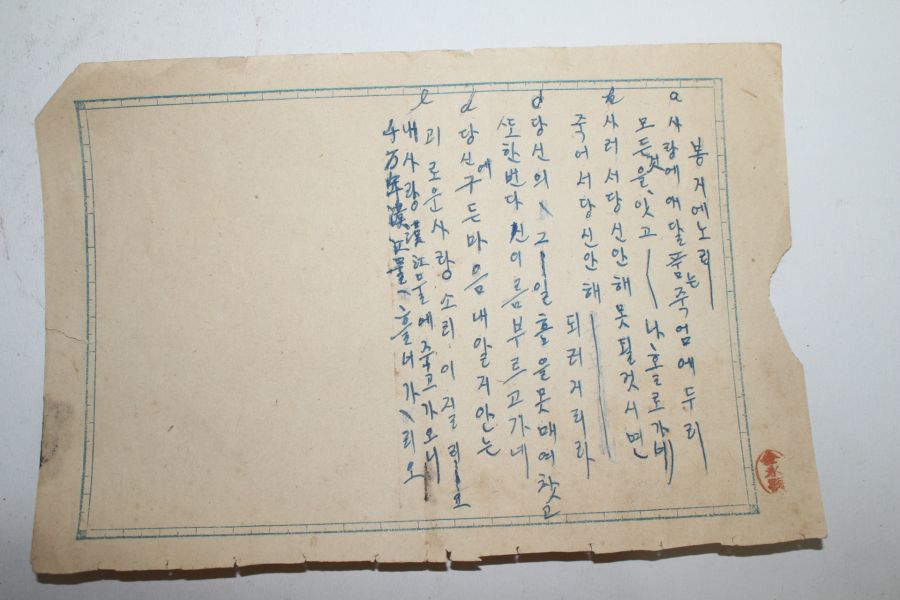 봉지에노래
a 사랑에애달픔는죽엄에두리
모든것을잇고 — 나홀로가네
b 사러서당신안해못될것시면
죽어서당신안해 — 되리라
d 당신의 그 — 일흠을못매여찻고
또한번다신이름부르고가네
d 당신에구든마음내알지안는
e 괴로운사랑소리이질리 — 요
내사랑漢江물에죽고가오니
千万年漢江물흘너가리오